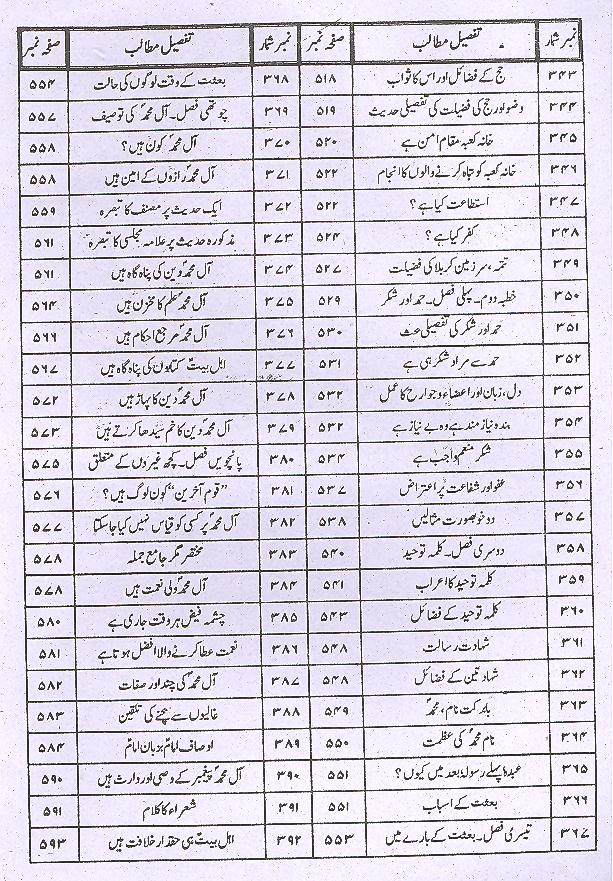 نمبر شمار تفصیل مطالب صفحہ نمبر نمبر شمار تفصیل مطالب صفحہ نمبر
۳۴۳ حج کے فضائل اور اس کا ثواب ۵۱۸ ۳۶۸ بعثت کے وقت لوگوں کی حالت ۵۵۴
۳۴۴ وضو اور حج کی فضیلت کی تفصیلی حدیث ۵۱۹ ۳۶۹ چوتھی فصل۔ آل محمدؐ کی توصیف ۵۵۷
۳۴۵ خانہ کعبہ مقام امن ہے ۵۲۰ ۳۷۰ آل محمدؐ کون ہیں؟ ۵۵۸
۳۴۶ خانہ کعبہ کو تباہ کرنے والوں کا انجام ۵۲۲ ۳۷۱ آل محمدؐ رازوں کے امین ہیں ۵۵۸
۳۴۷ استطاعت کیا ہے؟ ۵۲۲ ۳۷۲ ایک حدیث پر مصنف کا تبصرہ ۵۵۹
۳۴۸ کفر کیا ہے؟ ۵۲۴ ۳۷۳ مذکورہ حدیث پر علامہ مجلسی کا تبصرہ ۵۶۱
۳۴۹ تتمہ، سرزمین کربلا کی فضیلت ۵۲۷ ۳۷۴ آل محمدؐ دین کی پناہ گاہ ہیں ۵۶۱
۳۵۰ خطبہ دوم۔ پہلی فصل۔ حمد اور شکر ۵۲۹ ۳۷۵ آل محمدؐ علم کا مخزن ہیں ۵۶۴
۳۵۱ حمد اور شکر کی تفصیلی بحث ۵۳۰ ۳۷۶ آل محمدؐ مرجع احکام ہیں ۵۶۶
۳۵۲ حمد سے مراد شکر ہی ہے ۵۳۱ ۳۷۷ اہل بیتؑ کتابوں کی پناہ گاہ ہیں ۵۶۷
۳۵۳ دل، زبان اور اعضاء و جوارح کا عمل ۵۳۲ ۳۷۸ آل محمدؐ دین کا پہاڑ ہیں ۵۷۲
۳۵۴ بندہ نیاز مند ہے وہ بے نیاز ہے ۵۳۲ ۳۷۹ آل محمدؐ دین کا خم سیدھا کرتے ہیں ۵۷۳
۳۵۵ شکر منعم واجب ہے ۵۳۴ ۳۸۰ پانچویں فصل۔ کچھ غیروں کے متعلق ۵۷۵
۳۵۶ عفو اور شفاعت پر اعتراض ۵۳۷ ۳۸۱ ”قوم آخرین“ کون لوگ ہیں؟ ۵۷۶
۳۵۷ دو خوبصورت مثالیں ۵۳۸ ۳۸۲ آل محمدؐ پر کسی کو قیاس نہیں کیا جاسکتا ۵۷۷
۳۵۸ دوسری فصل۔ کلمہ توحید ۵۴۰ ۳۸۳ مختصر مگر جامع جملہ ۵۷۸
۳۵۹ کلمہ توحید کا اعراب ۵۴۱ ۳۸۴ آل محمدؐ ولی نعمت ہیں ۵۷۸
۳۶۰ کلمہ توحید کے فضائل ۵۴۳ ۳۸۵ چشمہ فیض ہر وقت جاری ہے ۵۸۰
۳۶۱ شہادت رسالت ۵۴۸ ۳۸۶ نعمت عطا کرنے والا افضل ہوتا ہے ۵۸۱
۳۶۲ شہادتین کے فضائل ۵۴۸ ۳۸۷ آل محمدؐ کی چند اور صفات ۵۸۲
۳۶۳ بابرکت نام، محمدؐ ۵۴۹ ۳۸۸ غالیوں سے بچنے کی تلقین ۵۸۳
۳۶۴ نام محمدؐ کی عظمت ۵۵۰ ۳۸۹ اوصاف امامؑ بزبان امامؑ ۵۸۴
۳۶۵ عبدہٗ پہلے رسولہٗ بعد میں کیوں؟ ۵۵۱ ۳۹۰ آل محمدؐ پیغمبر کے وصی اور وارث ہیں ۵۹۰
۳۶۶ بعثت کے اسباب ۵۵۱ ۳۹۱ شعراء کا کلام ۵۹۱
۳۶۷ تیسری فصل۔ بعثت کے بارے میں ۵۵۳ ۳۹۲ اہل بیتؑ ہی حقدار خلافت ہیں ۵۹۳